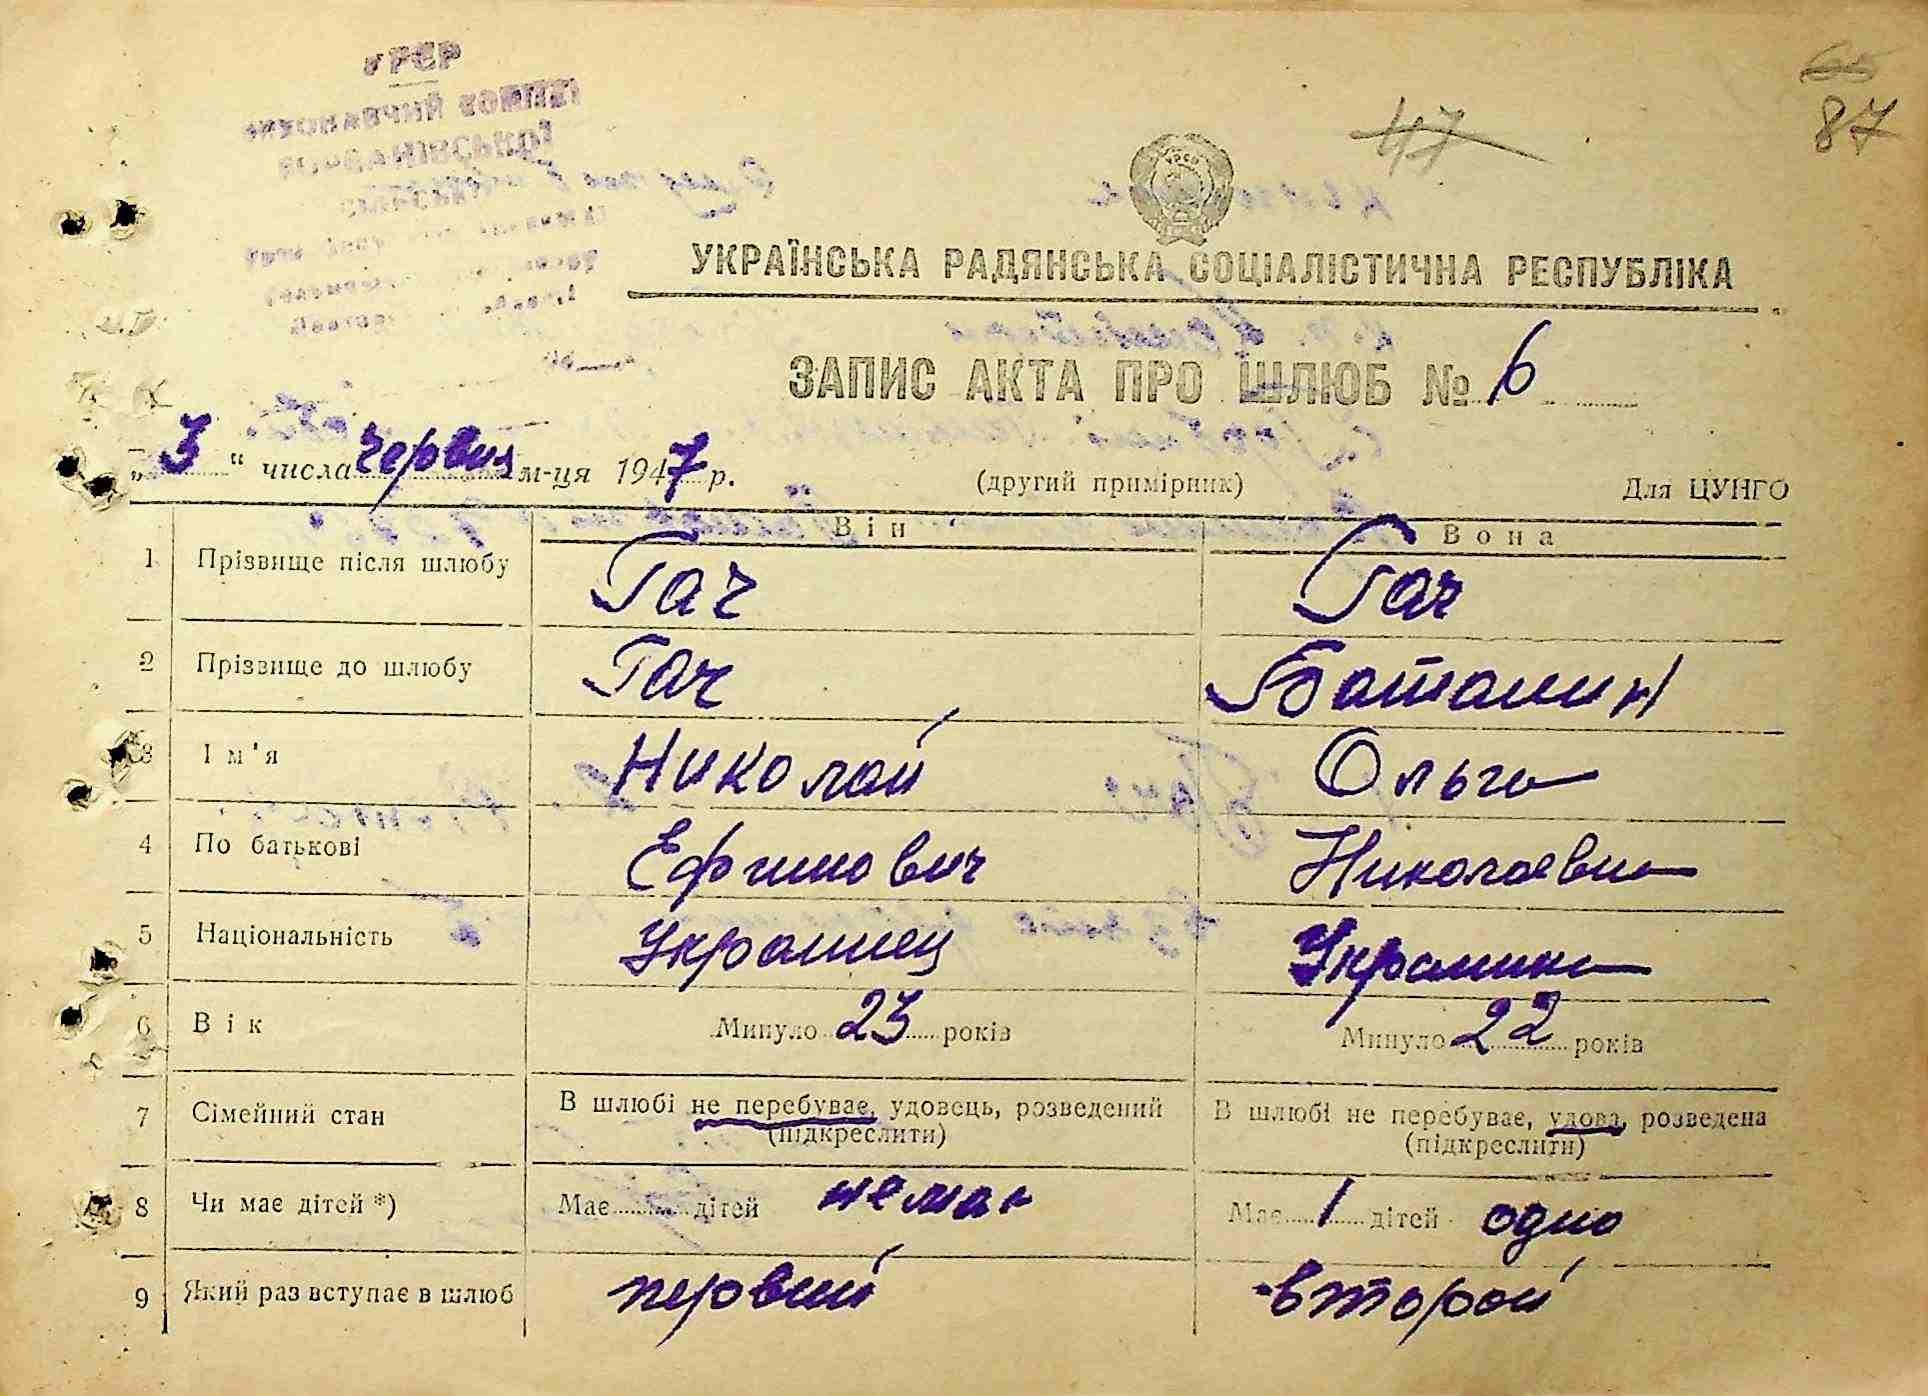 УРСР
ВИКОНАВЧИЙ КОМІТЕТ
65
87
47
УКРАЇНСЬКА РАДЯНСЬКА СОЦІАЛІСТИЧНА РЕСПУБЛІКА
ЗАПИС АКТА ПРО ШЛЮБ № 6
„3“ числа червня м-ця 1947 р. (другий примірник) Для ЦУНГО
Він Вона
1 Прізвище після шлюбу Гач Гач
2 Прізвище до шлюбу Гач
3 Ім'я Николай Ольга
4 По батькові Ефимович Николаевна
5 Національність Украинец Украинка
6 Вік Минуло 23 років Минуло 22 років
7 Сімейний стан В шлюбі не перебуває, удовець, розведений (підкреслити) В шлюбі не перебуває, удова, розведена (підкреслити)
8 Чи має дітей *) Має дітей немає Має 1 дітей одно
9 Який раз вступає в шлюб первый второй